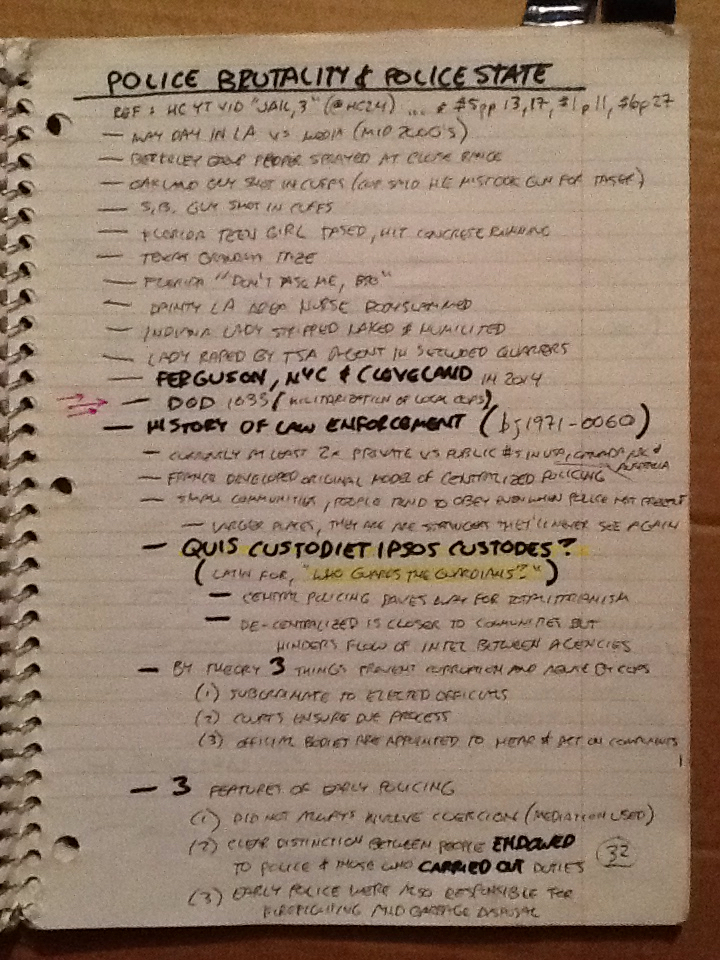 POLICE BRUTALITY & POLICE STATE
REF: HC YT VID "JAIL, 3" (@HC24) ... & $5pp 13, 17, $1p11, $6p27
— MAY DAY IN LA VS MEDIA (MID 2000'S)
— BERKELEY PEPPER SPRAYED AT CLOSE RANGE
— OAKLAND GUY SHOT IN CUFFS (COP SAID HE MISTOOK GUN FOR TASER)
— S.B. GUY SHOT IN CUFFS
— FLORIDA TEEN GIRL TASED, HIT CONCRETE RUNNING
— TEXAS GRANDMA TAZE
— FLORIDA "DON'T TASE ME, BRO"
— DAINTY LA NURSE BODYSLAMMED
— INDIANA LADY STRIPPED NAKED & HUMILITED
— LADY RAPED BY TSA AGENT IN SECLUDED QUARTERS
— FERGUSON, NYC & CLEVELAND IN 2014
— DOD 1033 (MILITARIZATION OF LOCAL COPS)
— HISTORY OF LAW ENFORCEMENT (bj1971-0060)
— CURRENTLY AT LEAST 2x PRIVATE VS PUBLIC #S IN USA, CANADA, UK &
AUSTRALIA
— FRANCE DEVELOPED ORIGINAL MODEL OF CENTRALIZED POLICING
— SMALL COMMUNITIES, PEOPLE TEND TO OBEY EVEN WHEN POLICE NOT PRESENT
— LARGER PLACES, THEY ARE ARE STRANGERS THEY'LL NEVER SEE AGAIN
— QUIS CUSTODIET IPSOS CUSTODES?
(LATIN FOR, "WHO GUARDS THE GUARDIANS?")
— CENTRAL POLICING PAVES WAY FOR TOTALITARIANISM
— DE-CENTRALIZED IS CLOSER TO COMMUNITIES BUT
HINDERS FLOW OF INTEL BETWEEN AGENCIES
— BY THEORY 3 THINGS PREVENT CORRUPTION AND ABUSE BY COPS
(1) SUBORDINATE TO ELECTED OFFICIALS
(2) COURTS ENSURE DUE PROCESS
(3) OFFICIAL BODIES ARE APPOINTED TO HEAR & ACT ON COMPLAINTS
— 3 FEATURES OF EARLY POLICING
(1) DID NOT ALWAYS INVOLVE COERCION (MEDIATION USED)
(2) CLEAR DISTINCTION BETWEEN PEOPLE ENDOWED
TO POLICE & THOSE WHO CARRIED OUT DUTIES
32
(3) EARLY POLICE WERE ALSO RESPONSIBLE FOR
FIREFIGHTING AND GARBAGE DISPOSAL